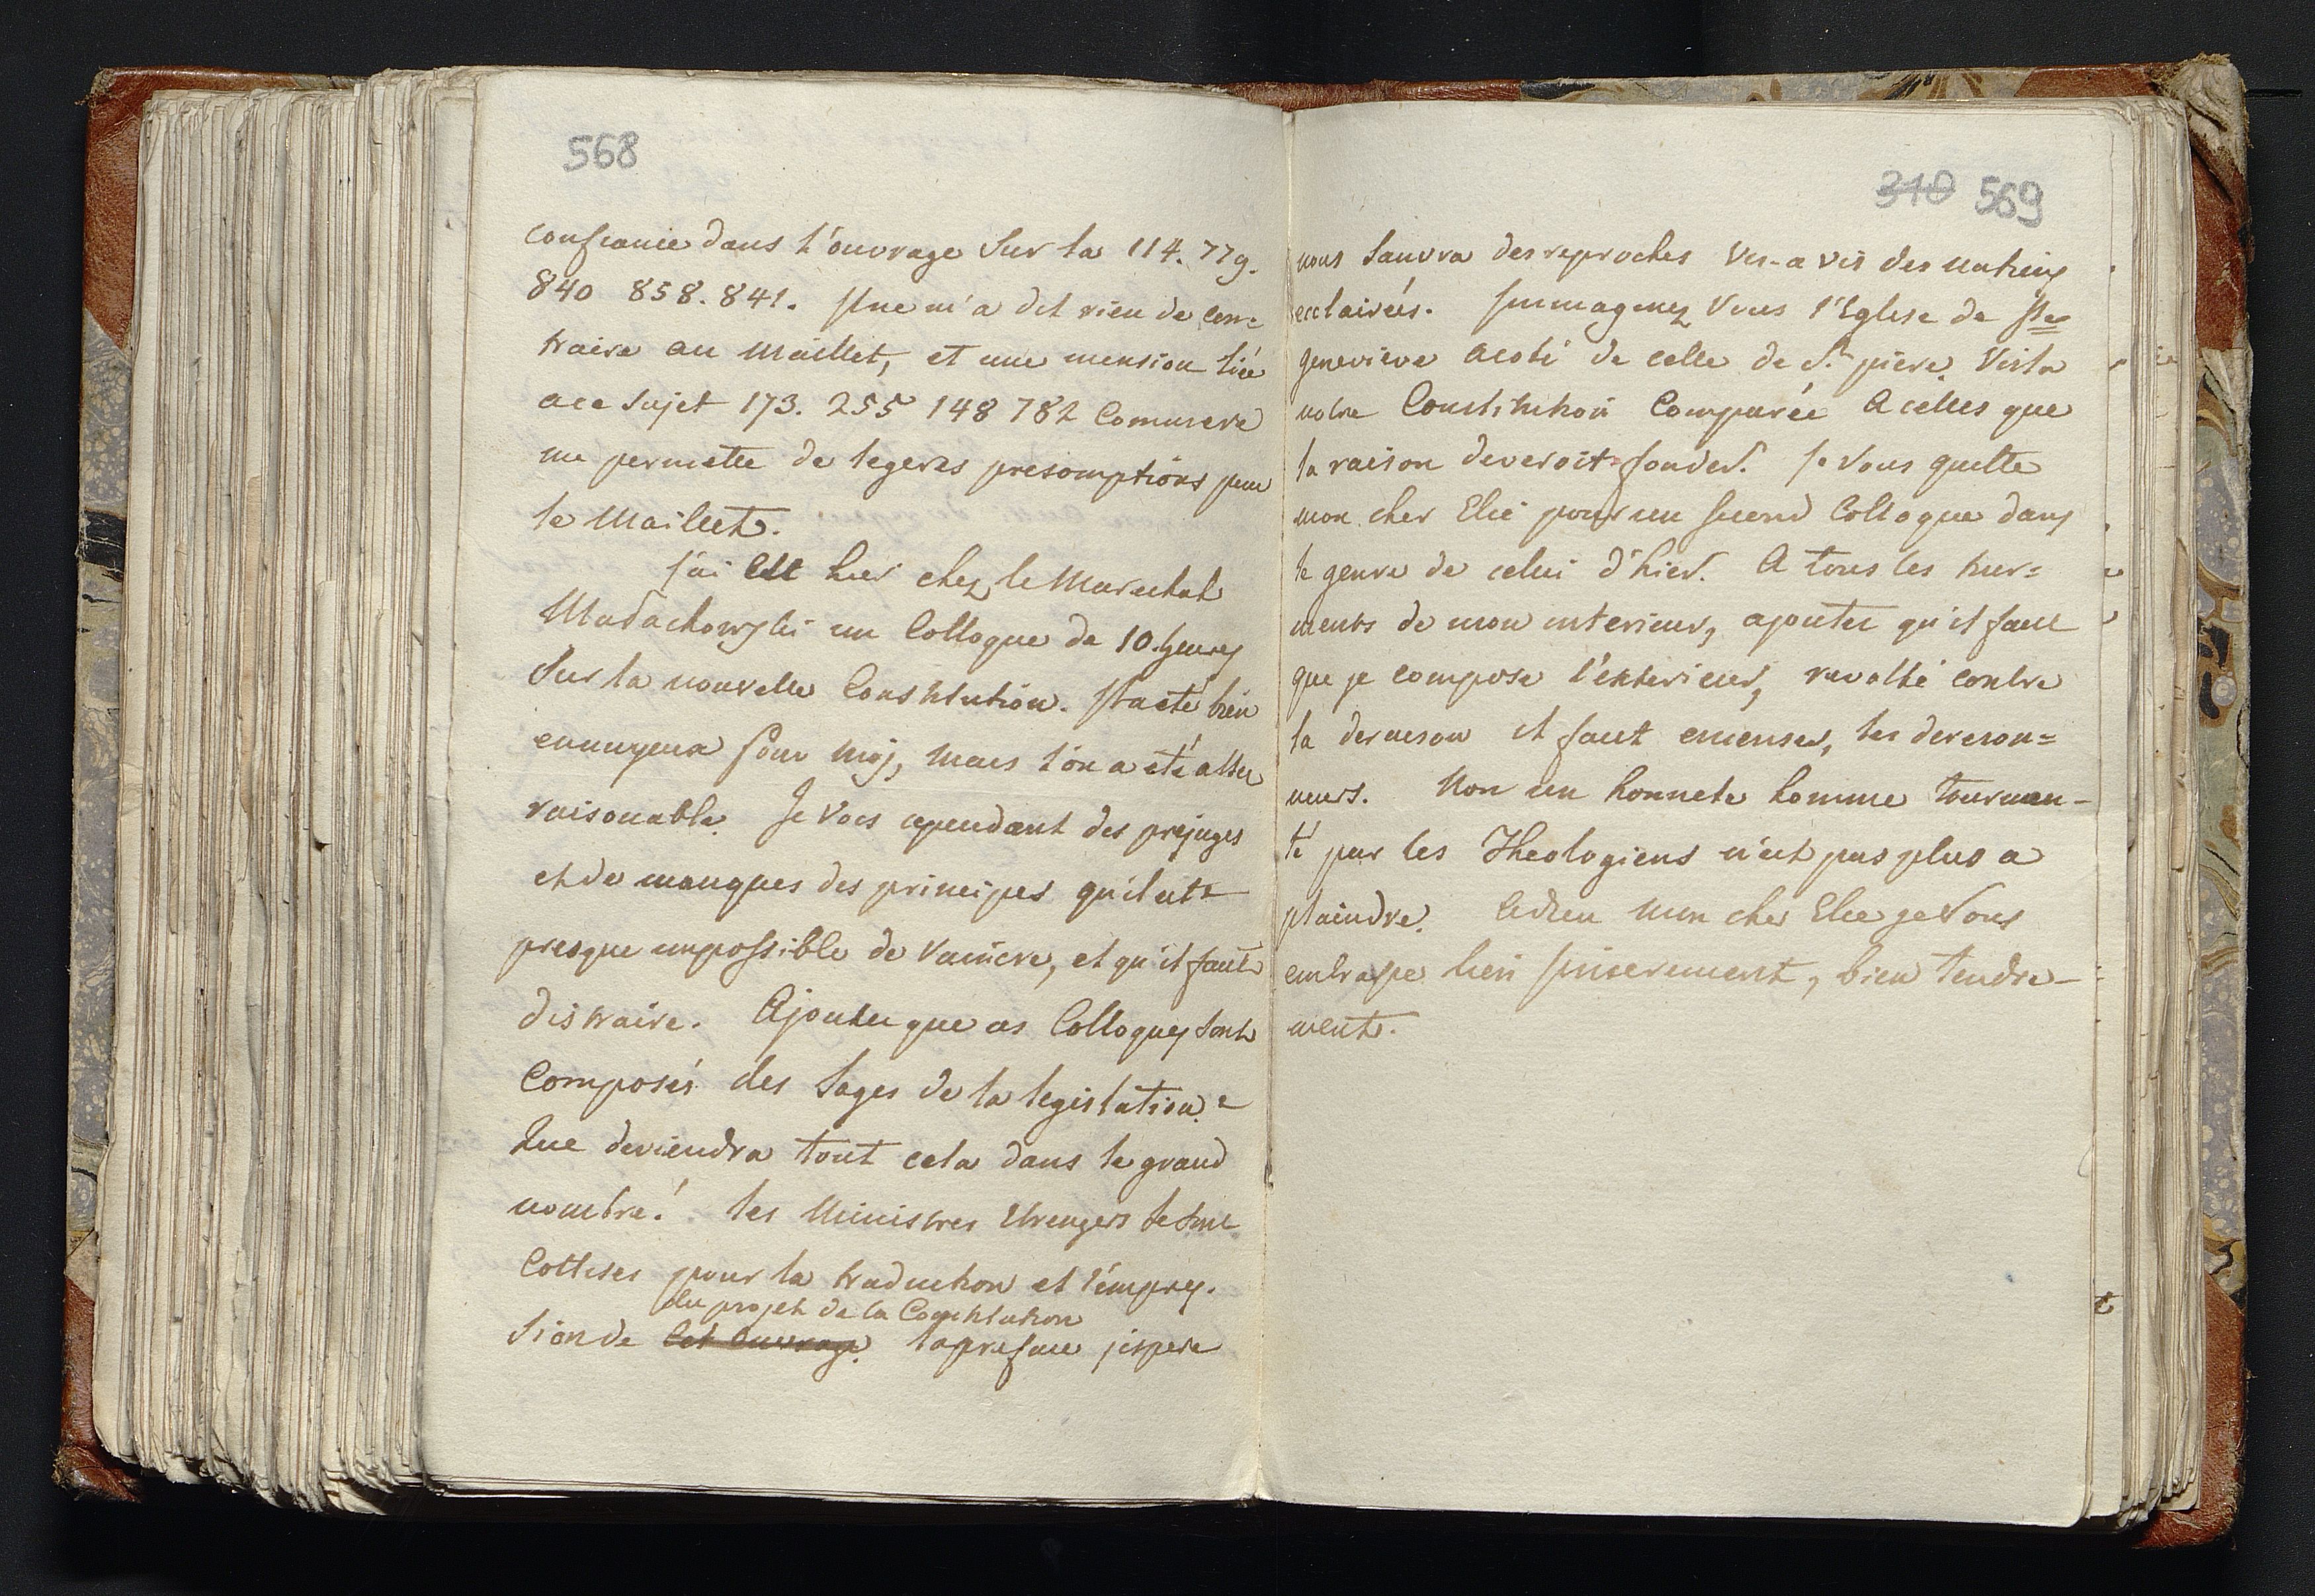 568
confiance dans l'ouvrage Sur la 114. 779.
840 858. 841. Il ne m'a dit rien de con=
traire au Maillet, et une mension liée
a ce Sujet 173. 255 148 782 Commerce
me permette de legeres presomptions pour
le Maillet.
J'ai eu hier chez le Marechal
Maÿachowski un Colloque de 10. heures
Sur la nouvelle Constitution. Il a eté bien
ennuyeux pour moj, mais l'on a eté assez
raisonable. Je vois cependant des prejuges
et de manques des principes qu'il est
presque impossible de vaincre, et qu'il faut
distraire. Ajoutez que ces Colloques sont
Composés des Sages de la legislation.
Que deviendra tout cela dans le grand
nombre! les Ministres Etrengers se sont
Cottises pour la traduction et l'impres.
du projet de la Constitution
Sion de cet ouvrage. la preface j'espere
310 569
nous Sauvra des reproches vis-a vis des nations
ecclairées. Immaginez vous l'Eglise de Ste
genevieve a coté de celle de St. piere. Voila
notre Constitution Comparée a celles que
la raison deveroit fonder. Je vous quitte
mon cher Elie pour un Second Colloque dans
le genre de celui d'hier. A tous les tur=
ments de mon interieur, ajoutez qu'il faut
que je compose l'exterieur, revolté contre
la dereson il faut encenser, les dereson=
neurs. Non un honnete homme tourmen-
té par les Theologiens n'est pas plus a
plaindre. Adieu mon cher Elie je vous
embrasse bien sincerement, bien tendre-
ment.